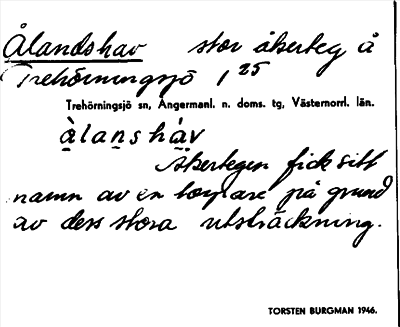 Ålandshav stor åkerteg å
Trehörningsjö 1 25
Trehörningsjö sn, Ångermanl. n. doms. tg, Västernorrl. län.
àlanshàv
Åkertegen fick sitt
namn av en torpare på grund
av dess stora utsträckning.
TORSTEN BURGMAN 1946.